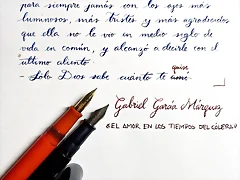 para siempre jamás con los ojos más
luminosos, más tristes y más agradecidos
que ella no le vio en medio siglo de
vida en común, y alcanzó a decirle con el
último aliento:
quise
- Sólo Dios sabe cuánto te amé.
Gabriel García Márquez
&EL AMOR EN LOS TIEMPOS DEL CÓLERA&